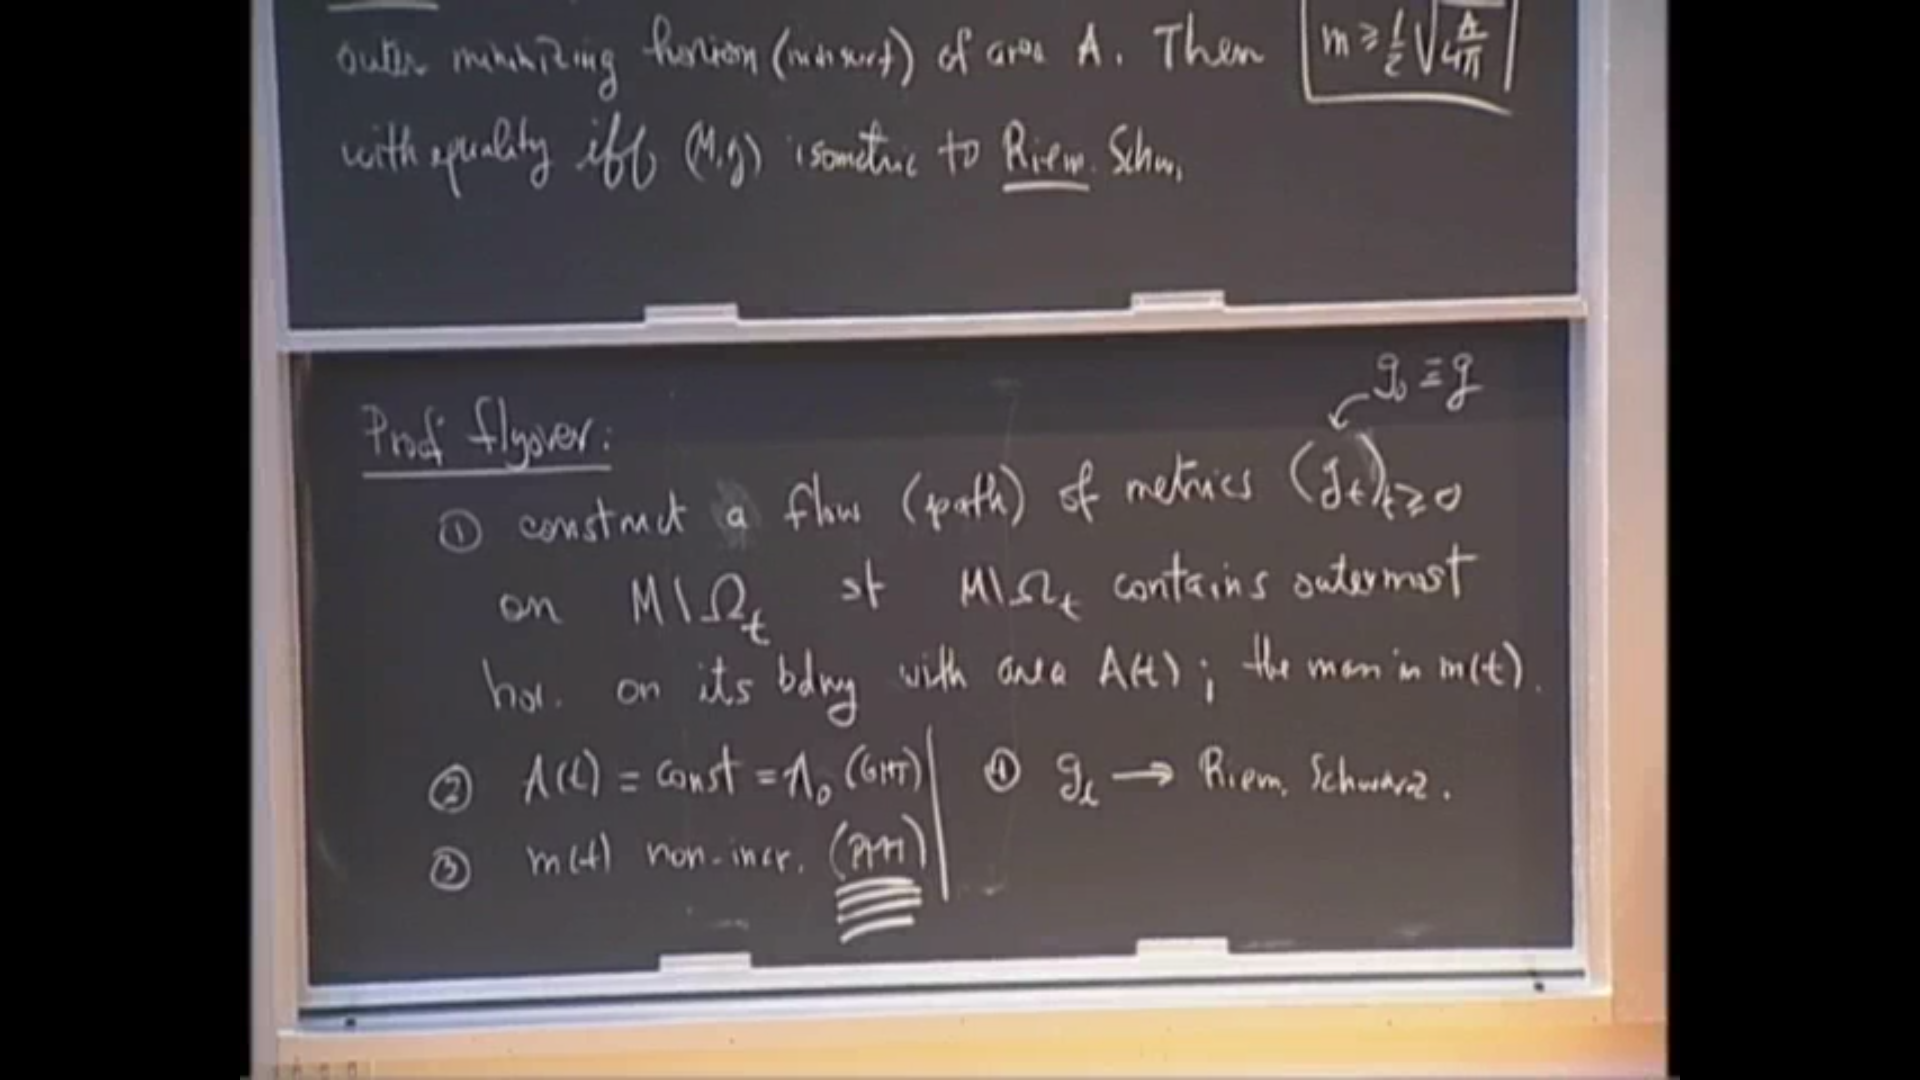 outer minimizing horizon (min surf) of area A. Then m ≥ 1/2 √(A/4π)
with equality iff (M,g) isometric to Riem. Schw.
g₀ ≡ g
Proof flyover:
① construct a flow (path) of metrics (g_t)_{t≥0}
on M\Ω_t st M\Ω_t contains outermost
hor. on its bdry with area A(t); the mass is m(t).
② A(t) = const = A₀ (GMT)
③ m(t) non-incr. (PMT)
④ g_t → Riem. Schwarz.